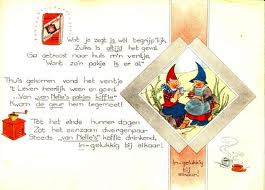 Wat je zegt is wel begrijp'lijk,
Zulks is altijd het geval.
Ga getroost naar huis m'n ventje,
Want zo'n pakje is er al."
Thuis gekomen vond het ventje
't Leven heerlijk weer en goed.
"Van Nelle's pakjes koffie"
Kwam de geur hem tegemoet!
Tot het einde hunner dagen
Zat het eenzaam dwergenpaar
Steeds "van Nelle's" koffie drinkend,
In-gelukkig bij elkaar!
In-gelukkig
bij
elkaar!